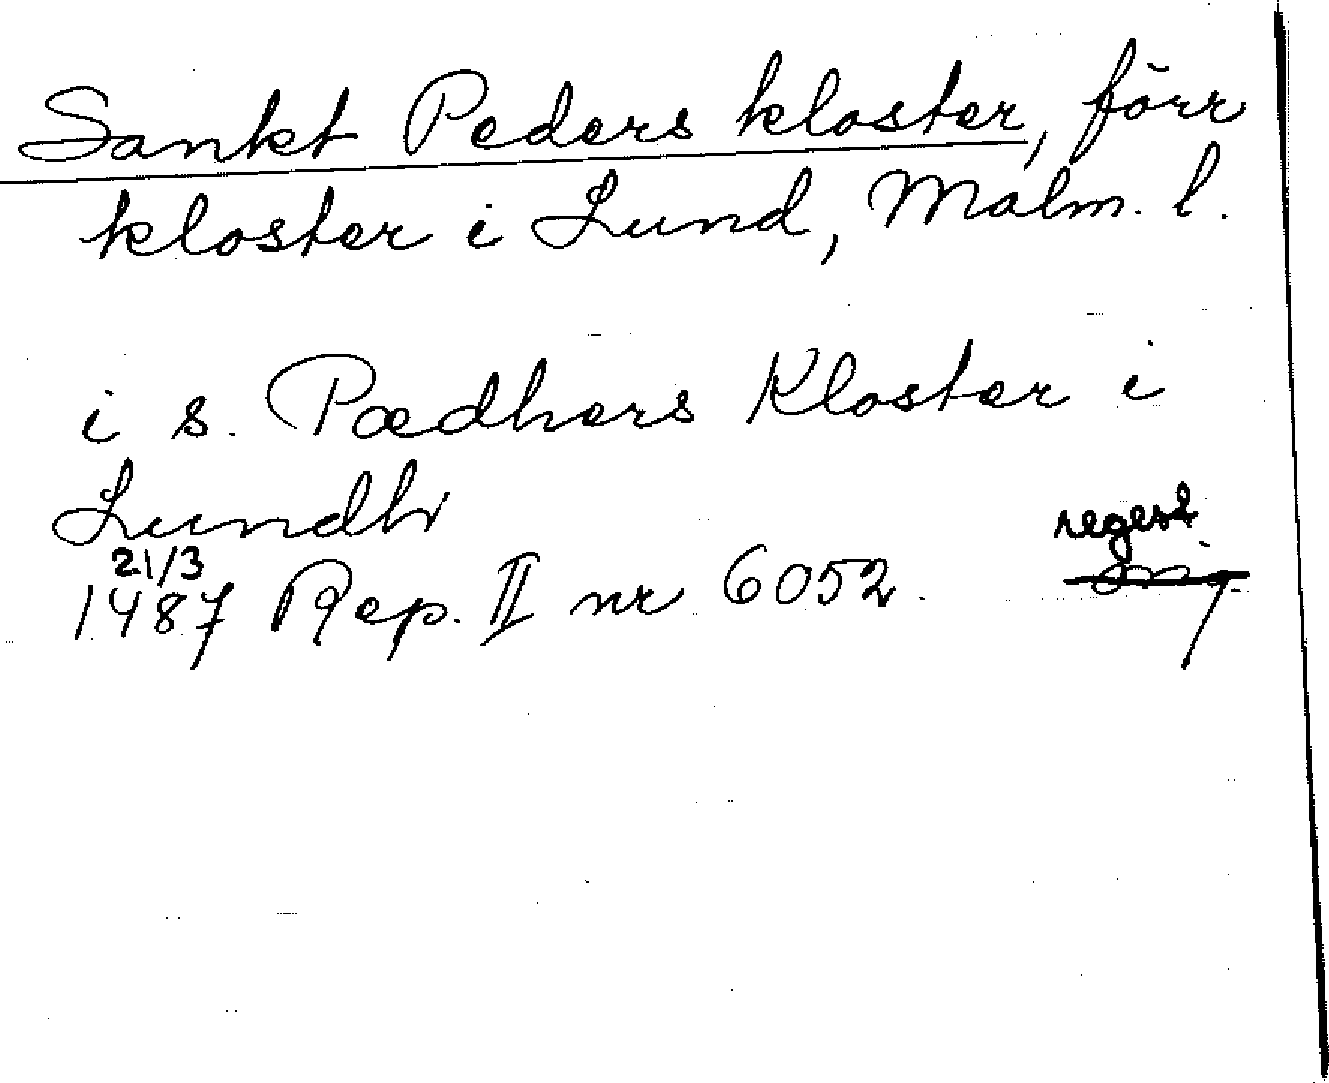 Sankt Peders kloster, förr
kloster i Lund, Malm. l.
i s. Pædhers Kloster i
Lundh
regest
21/3
1487 Rep. II nr 6052.